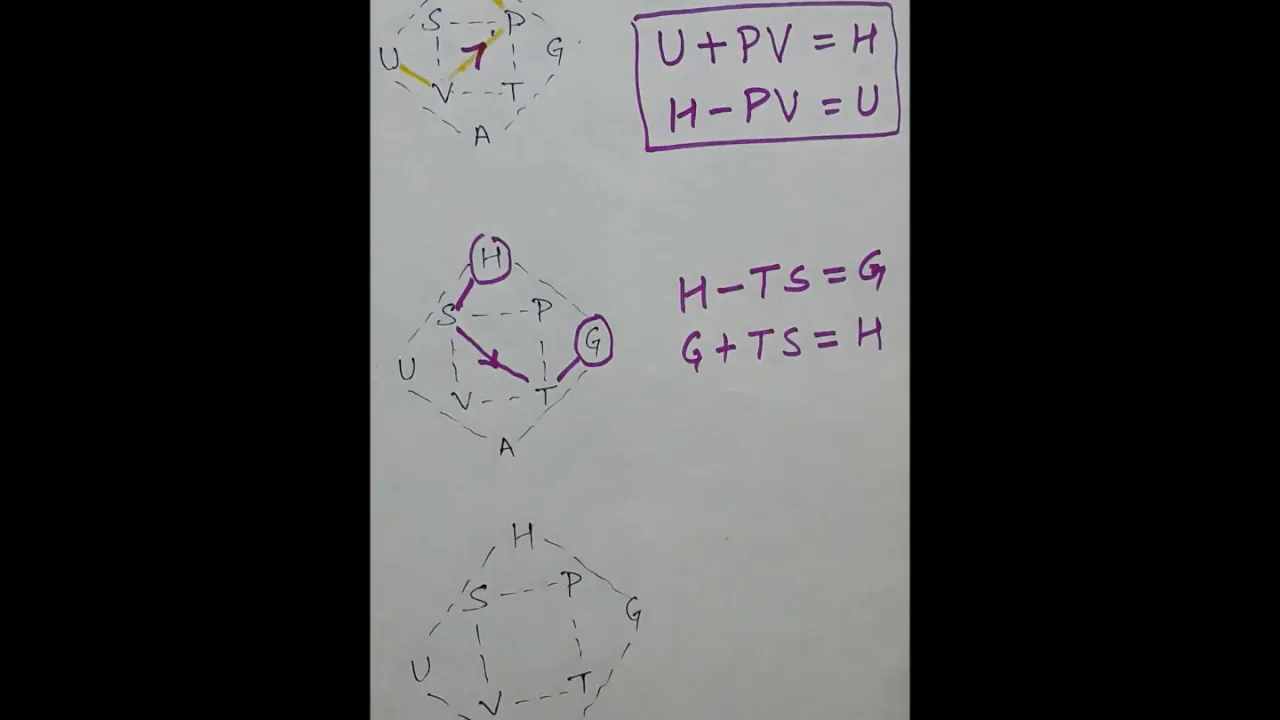 S P
U + PV = H
U G
V T
H - PV = U
A
H
H - TS = G
S P
G
G + TS = H
U
V T
A
H
S P
G
U
V T